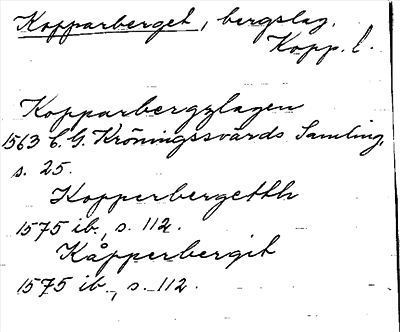 Kopparberget, bergslag.
Kopp. l.
Kopparbergzlagen
1563 C. G. Kröningssvärds Samling,
s. 25.
Kopperbergetth
1575 ib., s. 112.
Kåpperbergit
1575 ib., s. 112.